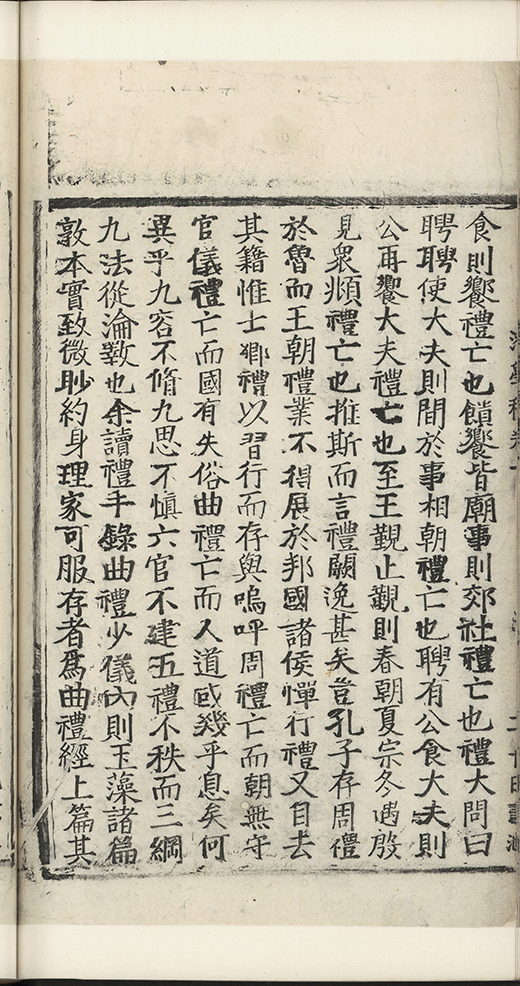 食則饗禮亡也饋饗皆廟事則郊社禮亡也禮大問曰
聘聘使大夫則間於事相朝禮亡也聘有公食大夫則
公再饗大夫禮亡也至王覲止覲則春朝夏宗冬遇殷
見衆頫禮亡也推斯而言禮闕逸甚矣豈孔子存周禮
於魯而王朝禮業不得展於邦國諸侯憚行禮又自去
其籍惟士鄉禮以習行而存與嗚呼周禮亡而朝無守
官儀禮亡而國有失俗曲禮亡而人道或幾乎息矣何
異乎九容不脩九思不慎六官不建五禮不秩而三綱
九法從淪斁也余讀禮手錄曲禮少儀內則玉藻諸篇
敦本實致微眇約身理家可服存者爲曲禮經上篇其